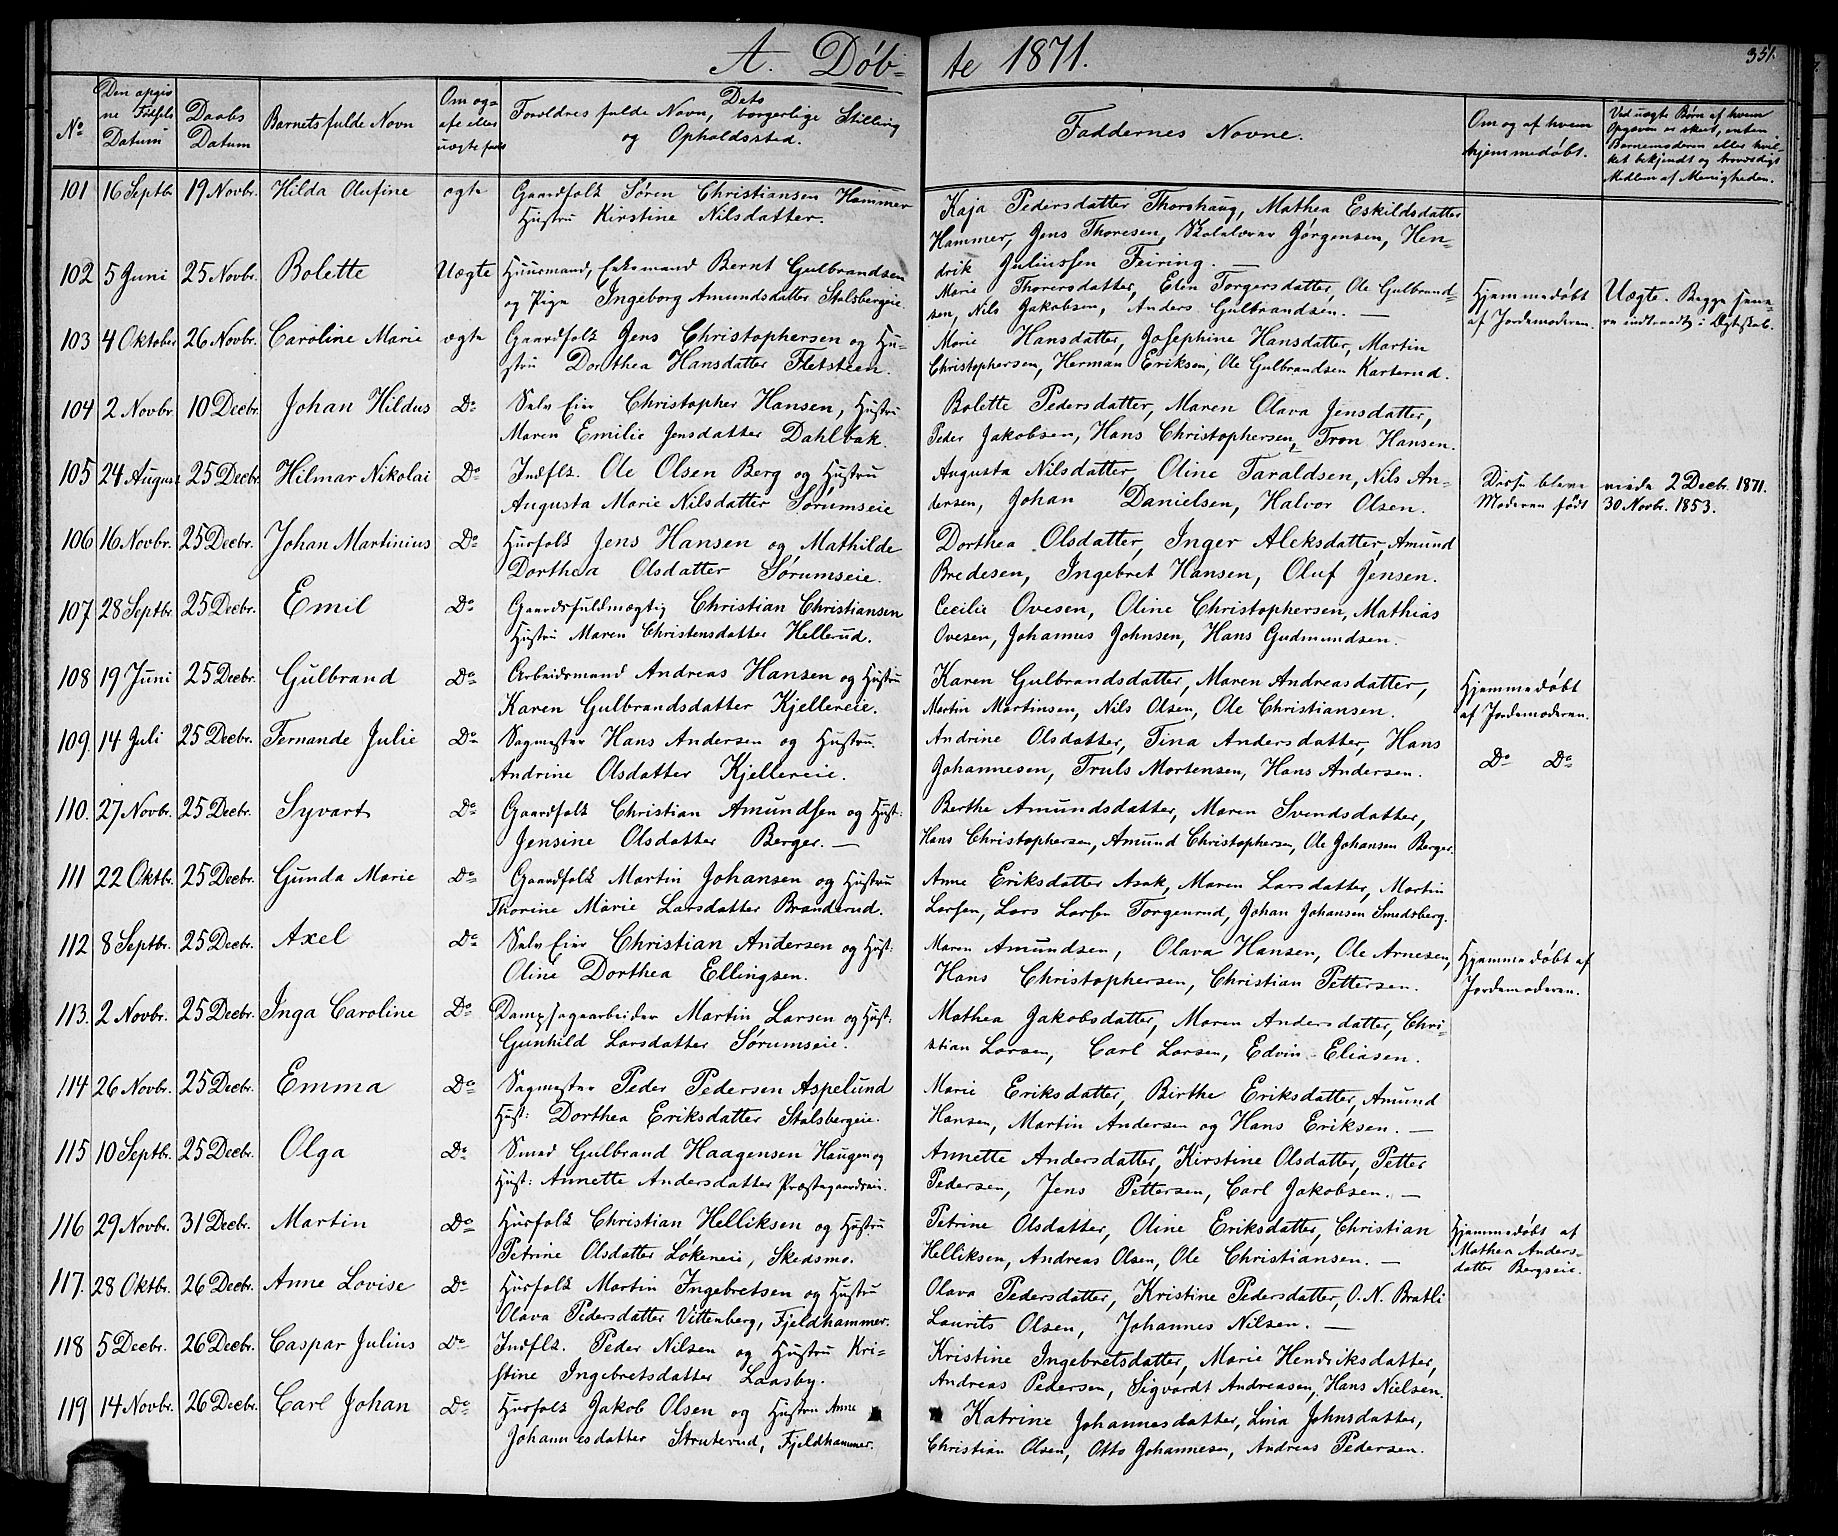 A. Døb- te 1871. 351.
No Den opgivne Fødsels Datum Daabs Datum Barnets fulde Navn Om ægte eller uægte født Forældres fulde Navn, Dets borgerlige Stilling og Opholdssted. Faddernes Navne. Om og af hvem hjemmedøbt. Ved uægte Børn af hvem Opgaven er skeet, enten Barnemoderen eller hvilket bekjendt og troværdigt Medlem af Menigheden.
101 16 Septbr 19 Novbr. Hilda Olufine ægte Gaardfolk Søren Christiansen Hammer
Hustru Kirstine Nilsdatter.
Kaja Pedersdatter Thorshaug, Mathea Eskildsdatter
Hammer, Jens Thoresen, Skolelærer Jørgensen, Hen-
drik Juliussen Feiring. —
102 5 Juni 25 Novbr. Bolette Uægte Huusmand, Enkemand Bernt Gulbrandsen
og Pige Ingeborg Amundsdatter Stalsbergeie.
Marie Thorersdatter, Elen Torgersdatter, Ole Gulbrand-
sen, Nils Jakobsen, Anders Gulbrandsen. —
Hjemmedøbt
af Jordemoderen.
Uægte. Begge sene-
re indtraadt i Ægteskab.
103 4 Oktober 26 Novbr. Caroline Marie ægte Gaardfolk Jens Christophersen og Hu-
stru Dorthea Hansdatter Fletsteen.
Marie Hansdatter, Josephine Hansdatter, Martin
Christophersen, Herman Eriksen, Ole Gulbrandsen Karterud.
104 2 Novbr. 10 Decbr. Johan Hildus Do Selv Eier Christopher Hansen, Hustru
Maren Emilie Jensdatter Dahlbak.
Bolette Pedersdatter, Maren Olava Jensdatter,
Peder Jakobsen, Hans Christophersen, Tron Hansen.
105 24 August 25 Decbr. Hilmar Nikolai Do Indflr. Ole Olsen Berg og Hustru
Augusta Marie Nilsdatter Sørumseie
Augusta Nilsdatter, Oline Taraldsen, Nils An-
dersen, Johan Danielsen, Halvor Olsen.
Disse bleve viede 2 Decbr. 1871.
Moderen født 30 Novbr. 1853.
106 16 Novbr. 25 Decbr. Johan Martinius Do Husfolk Jens Hansen og Mathilde
Dorthea Olsdatter Sørumseie.
Dorthea Olsdatter, Inger Aleksdatter, Amund
Bredesen, Ingebret Hansen, Oluf Jensen.
107 28 Septbr. 25 Decbr. Emil Do Gaardsfuldmægtig Christian Christiansen
Hustru Maren Christensdatter Hellerud.
Cecilie Ovesen, Oline Christophersen, Mathias
Ovesen, Johannes Johnsen, Hans Gudmundsen.
108 19 Juni 25 Decbr. Gulbrand Do Arbeidsmand Andreas Hansen og Hustru
Karen Gulbrandsdatter Kjellereie.
Karen Gulbrandsdatter, Maren Andreasdatter,
Martin Martinsen, Nils Olsen, Ole Christiansen.
Hjemmedøbt
af Jordemoderen.
109. 14 Juli 25 Decbr. Fernande Julie Do Sagmester Hans Andersen og Hustru
Andrine Olsdatter Kjellereie.
Andrine Olsdatter, Tina Andersdatter, Hans
Johannesen, Truls Mortensen, Hans Andersen.
Do Do
110. 27 Novbr. 25 Decbr. Syvart Do Gaardfolk Christian Amundsen og Hust:
Jensine Olsdatter Berger. —
Berthe Amundsdatter, Maren Svendsdatter,
Hans Christophersen, Amund Christophersen, Ole Johansen Berger.
111 22 Oktbr. 25 Decbr. Gunda Marie Do Gaardfolk Martin Johansen og Hustru
Thorine Marie Larsdatter Branderud.
Anne Eriksdatter Asak, Maren Larsdatter, Martin
Larsen, Lars Larsen Torgenrud, Johan Johansen Smedsberg.
112 8 Septbr. 25 Decbr. Axel Do Selv Eier Christian Andersen og Hust:
Oline Dorthea Ellingsen.
Maren Amundsen, Olava Hansen, Ole Arnesen,
Hans Christophersen, Christian Pettersen.
Hjemmedøbt af
Jordemoderen.
113. 2 Novbr. 25 Decbr. Inga Caroline Do Dampsagarbeider Martin Larsen og Hust:
Gunhild Larsdatter Sørumseie.
Mathea Jakobsdatter, Maren Andersdatter, Chri-
stian Larsen, Carl Larsen, Edvin Eliasen.
114 26 Novbr. 25 Decbr. Emma Do Sagmester Peder Pedersen Aspelund
Hust: Dorthea Eriksdatter Stalsbergeie.
Marie Eriksdatter, Birthe Eriksdatter, Amund
Hansen, Martin Andersen og Hans Eriksen. —
115 10 Septbr. 25 Decbr. Olga Do Smed Gulbrand Haagensen Haugen og
Hust: Annette Andersdatter Præstegaardseie.
Annette Andersdatter, Kirstine Olsdatter, Petter
Pedersen, Jens Pettersen, Carl Jakobsen. —
116 29 Novbr. 31 Decbr. Martin Do Husfolk Christian Helliksen og Hustru
Petrine Olsdatter Løkeneie, Skedsmo.
Petrine Olsdatter, Oline Eriksdatter, Christian
Helliksen, Andreas Olsen, Ole Christiansen. —
Hjemmedøbt af
Mathea Anders-
datter Bergseie.
117. 28 Oktbr. 26 Decbr. Anne Lovise Do Husfolk Martin Ingebretsen og Hustru
Olava Pedersdatter Vittenberg, Fjeldhammer.
Olava Pedersdatter, Kristine Pedersdatter, O. N. Bratli
Laurits Olsen, Johannes Nilsen. —
118 5 Decbr. 26 Decbr. Caspar Julius Do Indflr. Peder Nilsen og Hustru Kri-
stine Ingebretsdatter Laasby.
Kristine Ingebretsdatter, Marie Hendriksdatter,
Andreas Pedersen, Sigvardt Andreasen, Hans Nielsen.
119 14 Novbr. 26 Decbr. Carl Johan Do Husfolk Jakob Olsen og Hustru Anne
Johannesdatter Struterud, Fjeldhammer.
Katrine Johannesdatter, Lina Johnsdatter,
Christian Olsen, Otto Johannesen, Andreas Pedersen.